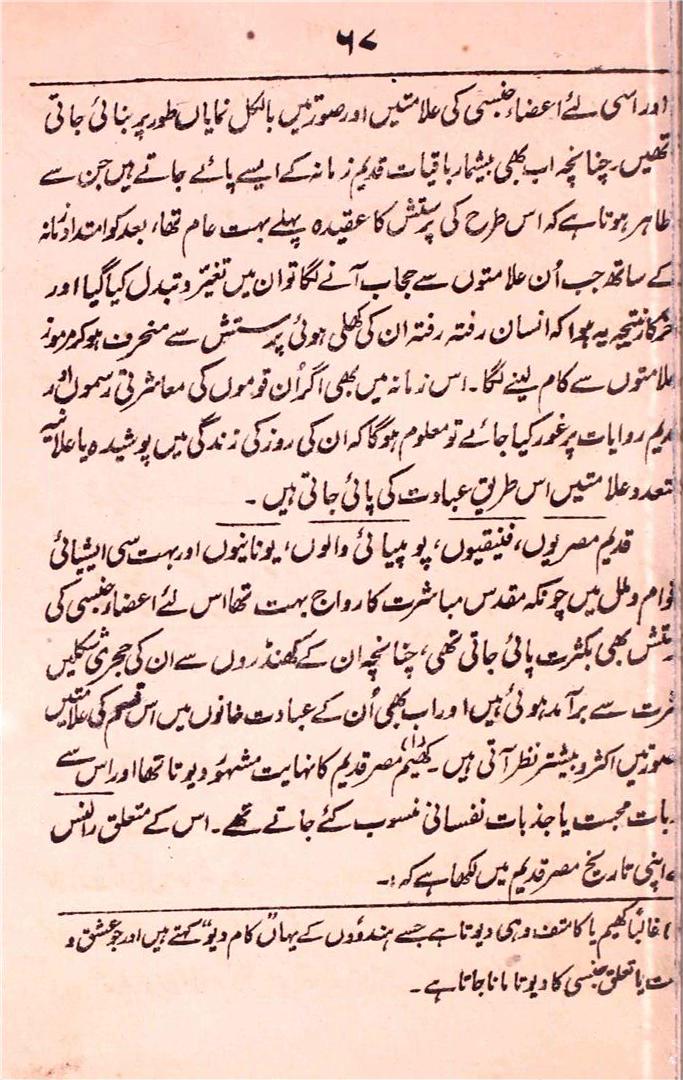 ۶۷
اور اسی لئے اعضاء جنسی کی علامتیں اور صورتیں بالکل نمایاں طور پر بنائی جاتی
تھیں۔ چنانچہ اب بھی بیشمار باقیات قدیم زمانہ کے ایسے پائے جاتے ہیں جن سے
ظاہر ہوتا ہے کہ اس طرح کی پرستش کا عقیدہ پہلے بہت عام تھا، بعد کو امتداد زمانہ
کے ساتھ جب اُن علامتوں سے حجاب آنے لگا تو ان میں تغیر و تبدل کیا گیا اور
خرکار نتیجہ یہ ہوا کہ انسان رفتہ رفتہ ان کی کھلی ہوئی پرستش سے منحرف ہو کر مرموز
علامتوں سے کام لینے لگا۔ اس زمانہ میں بھی اگر اُن قوموں کی معاشرتی رسموں اور
دیم روایات پر غور کیا جائے تو معلوم ہوگا کہ ان کی روز کی زندگی میں پوشیدہ یا علانیہ
تعدد علامتیں اس طریق عبادت کی پائی جاتی ہیں۔
قدیم مصریوں، فنیقیوں، پومپیائی والوں، یونانیوں اور بہت سی ایشیائی
قوام و ملل میں چونکہ مقدس مباشرت کا رواج بہت تھا اس لئے اعضاء جنسی کی
رستش بھی بکثرت پائی جاتی تھی، چنانچہ ان کے کھنڈروں سے ان کی حجری شکلیں
ثرت سے برآمد ہوئی ہیں اور اب بھی اُن کے عبادت خانوں میں اس قسم کی علامتیں
صورتیں اکثر و بیشتر نظر آتی ہیں۔ کھیم (۱) مصر قدیم کا نہایت مشہور دیوتا تھا اور اس سے
ذبات محبت یا جذبات نفسانی منسوب کئے جاتے تھے۔ اس کے متعلق رالنس
نے اپنی تاریخ مصر قدیم میں لکھا ہے کہ:۔
) غالباً کھیم یا کامتف وہی دیوتا ہے جسے ہندوؤں کے یہاں "کام دیو" کہتے ہیں اور جو عشق و
ت یا تعلق جنسی کا دیوتا مانا جاتا ہے۔